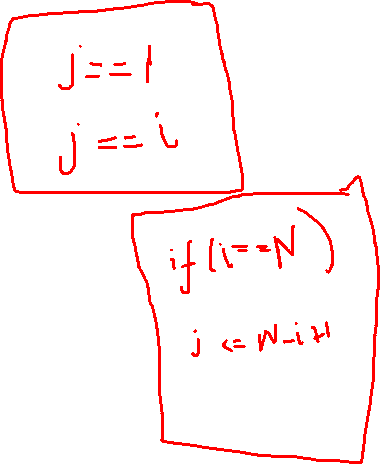 j==1
j<=i
if(i==N)
j <= N-i+1